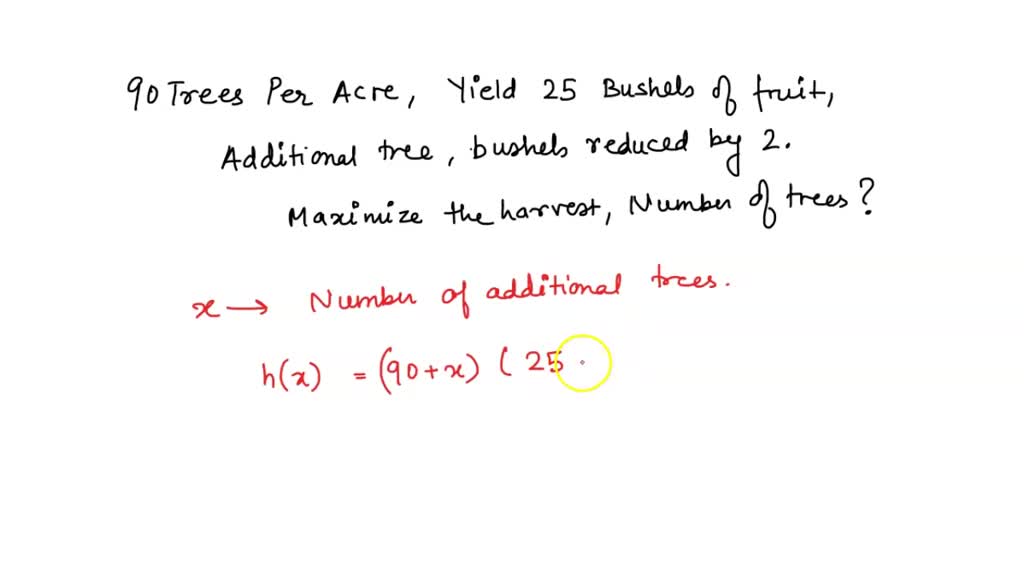 90 Trees Per Acre, Yield 25 Bushels of fruit,
Additional tree, bushels reduced by 2.
Maximize the harvest, Number of trees?
x → Number of additional trees.
h(x) = (90+x) ( 25